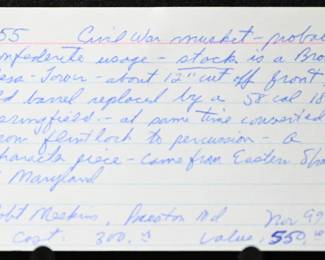 55 Civil War musket - probab
onfederate usage - stock is a Bro
ess - Tower - about 12" cut off front
d barrel replaced by a 58 cal 18
pringfield - at same time converted
rom flintlock to percussion - a
character piece - came from Eastern Sho
Maryland
obt Meekins, Preston Md Nov 99
Cost. 300. Value, 550.